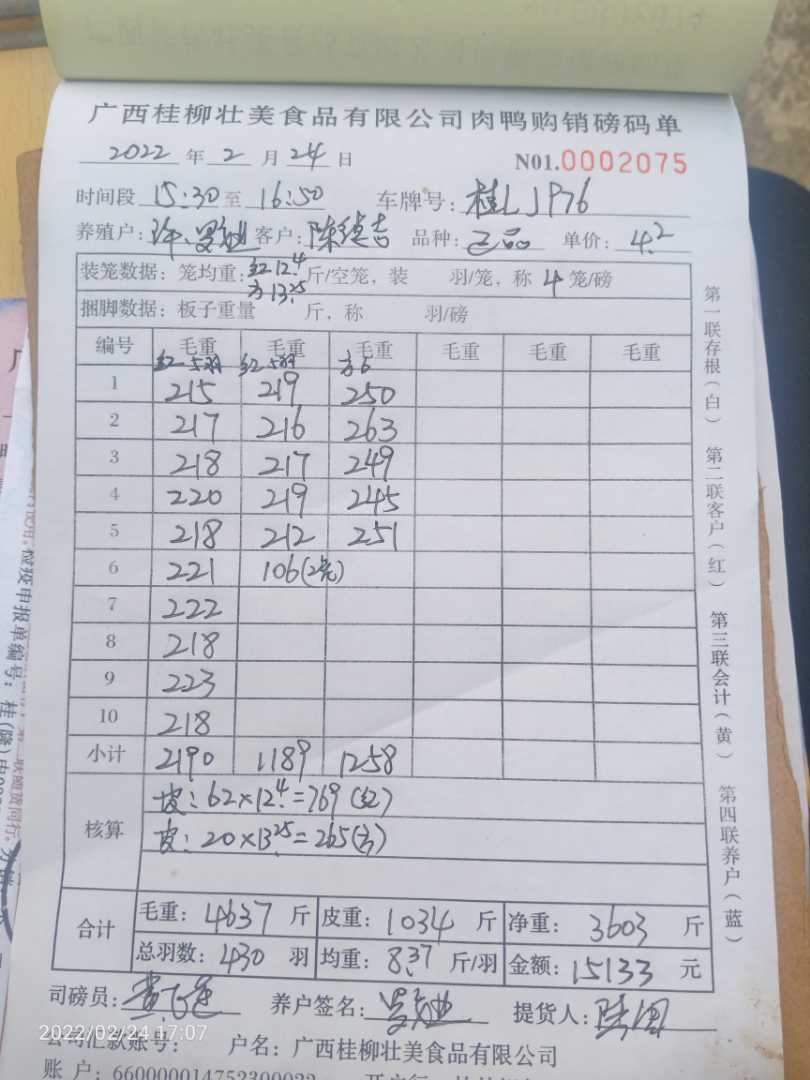 广西桂柳壮美食品有限公司肉鸭购销磅码单
2022 年 2 月 24 日 N01.0002075
时间段 15:30 至 16:50 车牌号: 桂LJP976
养殖户: 客户: 品种: 正品 单价: 4.2
装笼数据: 笼均重: 红12.4 斤/空笼, 装 羽/笼, 称 4 笼/磅
方13.25
捆脚数据: 板子重量 斤, 称 羽/磅
编号 毛重 毛重 毛重 毛重 毛重 毛重
红5羽 红5羽 方6
1 215 219 250
2 217 216 263
3 218 217 249
4 220 219 245
5 218 212 251
6 221 106(2壳)
7 222
8 218
9 223
10 218
小计 2190 1189 1258
核算 皮: 62×12.4=769(红)
皮: 20×13.25=265(方)
合计 毛重: 4637 斤 皮重: 1034 斤 净重: 3603 斤
总羽数: 430 羽 均重: 8.37 斤/羽 金额: 15133 元
司磅员: 养户签名: 提货人:
2022/02/24 17:07
公司汇款账号: 户名: 广西桂柳壮美食品有限公司
账 户: 660000014752300022 开户行:
第一联存根(白) 第二联客户(红) 第三联会计(黄) 第四联养户(蓝)